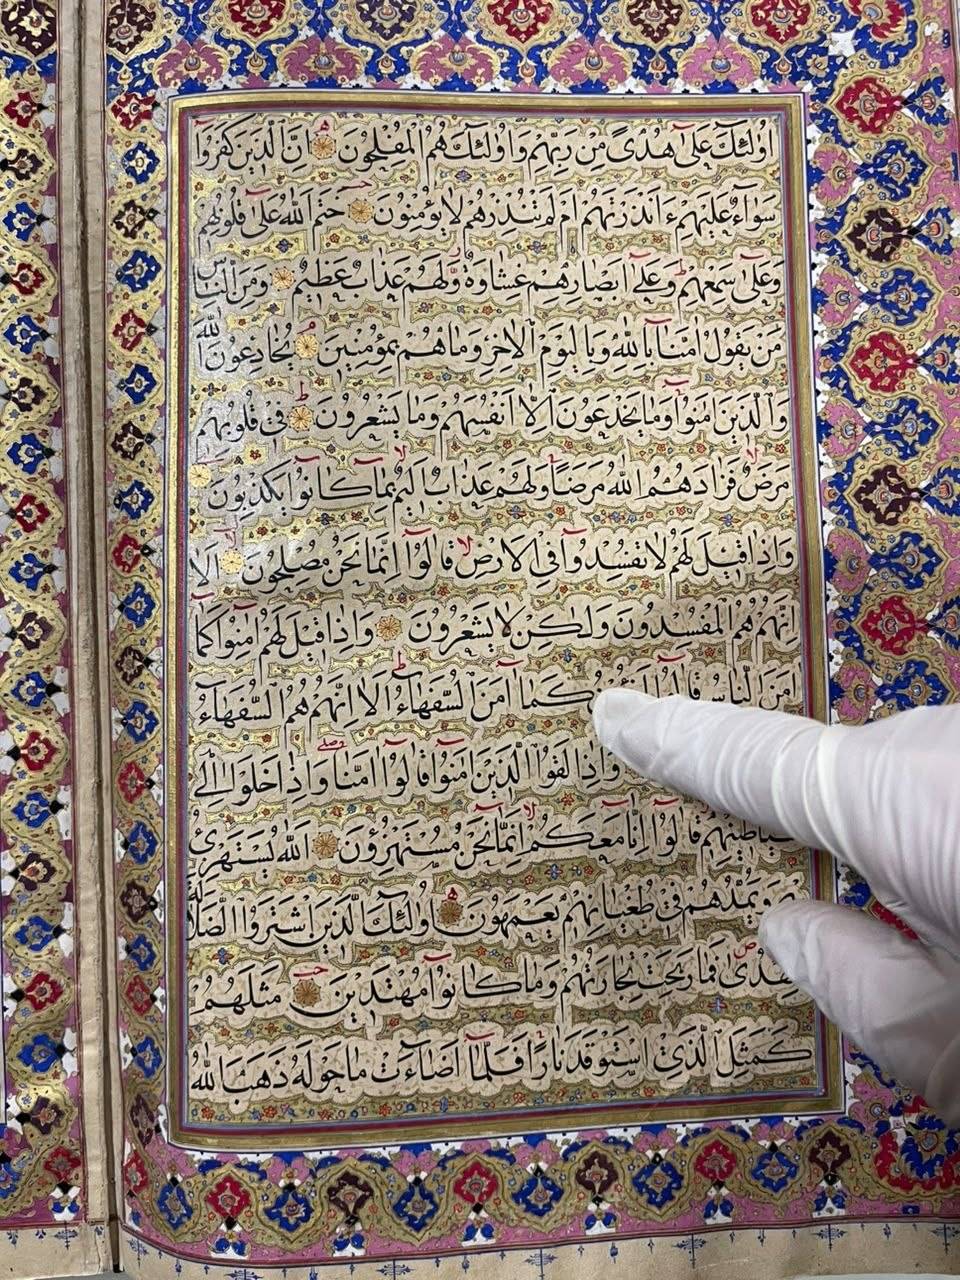 اُولٰئِكَ عَلٰى هُدًى مِنْ رَبِّهِمْ وَاُولٰئِكَ هُمُ الْمُفْلِحُونَ اِنَّ الَّذِينَ كَفَرُوا
سَوَاءٌ عَلَيْهِمْ ءَاَنْذَرْتَهُمْ اَمْ لَمْ تُنْذِرْهُمْ لَا يُؤْمِنُونَ خَتَمَ اللّٰهُ عَلٰى قُلُوبِهِمْ
وَعَلٰى سَمْعِهِمْ وَعَلٰى اَبْصَارِهِمْ غِشَاوَةٌ وَلَهُمْ عَذَابٌ عَظِيمٌ وَمِنَ النَّاسِ
مَنْ يَقُولُ اٰمَنَّا بِاللّٰهِ وَبِالْيَوْمِ الْاٰخِرِ وَمَا هُمْ بِمُؤْمِنِينَ يُخَادِعُونَ اللّٰهَ
وَالَّذِينَ اٰمَنُوا وَمَا يَخْدَعُونَ اِلَّا اَنْفُسَهُمْ وَمَا يَشْعُرُونَ فِى قُلُوبِهِمْ
مَرَضٌ فَزَادَهُمُ اللّٰهُ مَرَضًا وَلَهُمْ عَذَابٌ اَلِيمٌ بِمَا كَانُوا يَكْذِبُونَ
وَاِذَا قِيلَ لَهُمْ لَا تُفْسِدُوا فِى الْاَرْضِ قَالُوا اِنَّمَا نَحْنُ مُصْلِحُونَ اَلَا
اِنَّهُمْ هُمُ الْمُفْسِدُونَ وَلٰكِنْ لَا يَشْعُرُونَ وَاِذَا قِيلَ لَهُمْ اٰمِنُوا كَمَا
اٰمَنَ النَّاسُ قَالُوا كَمَا اٰمَنَ السُّفَهَاءُ اَلَا اِنَّهُمْ هُمُ السُّفَهَاءُ
وَاِذَا لَقُوا الَّذِينَ اٰمَنُوا قَالُوا اٰمَنَّا وَاِذَا خَلَوْا اِلٰى
قَالُوا اِنَّا مَعَكُمْ اِنَّمَا نَحْنُ مُسْتَهْزِؤُنَ اَللّٰهُ يَسْتَهْزِئُ
وَيَمُدُّهُمْ فِى طُغْيَانِهِمْ يَعْمَهُونَ اُولٰئِكَ الَّذِينَ اشْتَرَوُا الضَّلَالَةَ
فَمَا رَبِحَتْ تِجَارَتُهُمْ وَمَا كَانُوا مُهْتَدِينَ مَثَلُهُمْ
كَمَثَلِ الَّذِى اسْتَوْقَدَ نَارًا فَلَمَّا اَضَاءَتْ مَا حَوْلَهُ ذَهَبَ اللّٰهُ